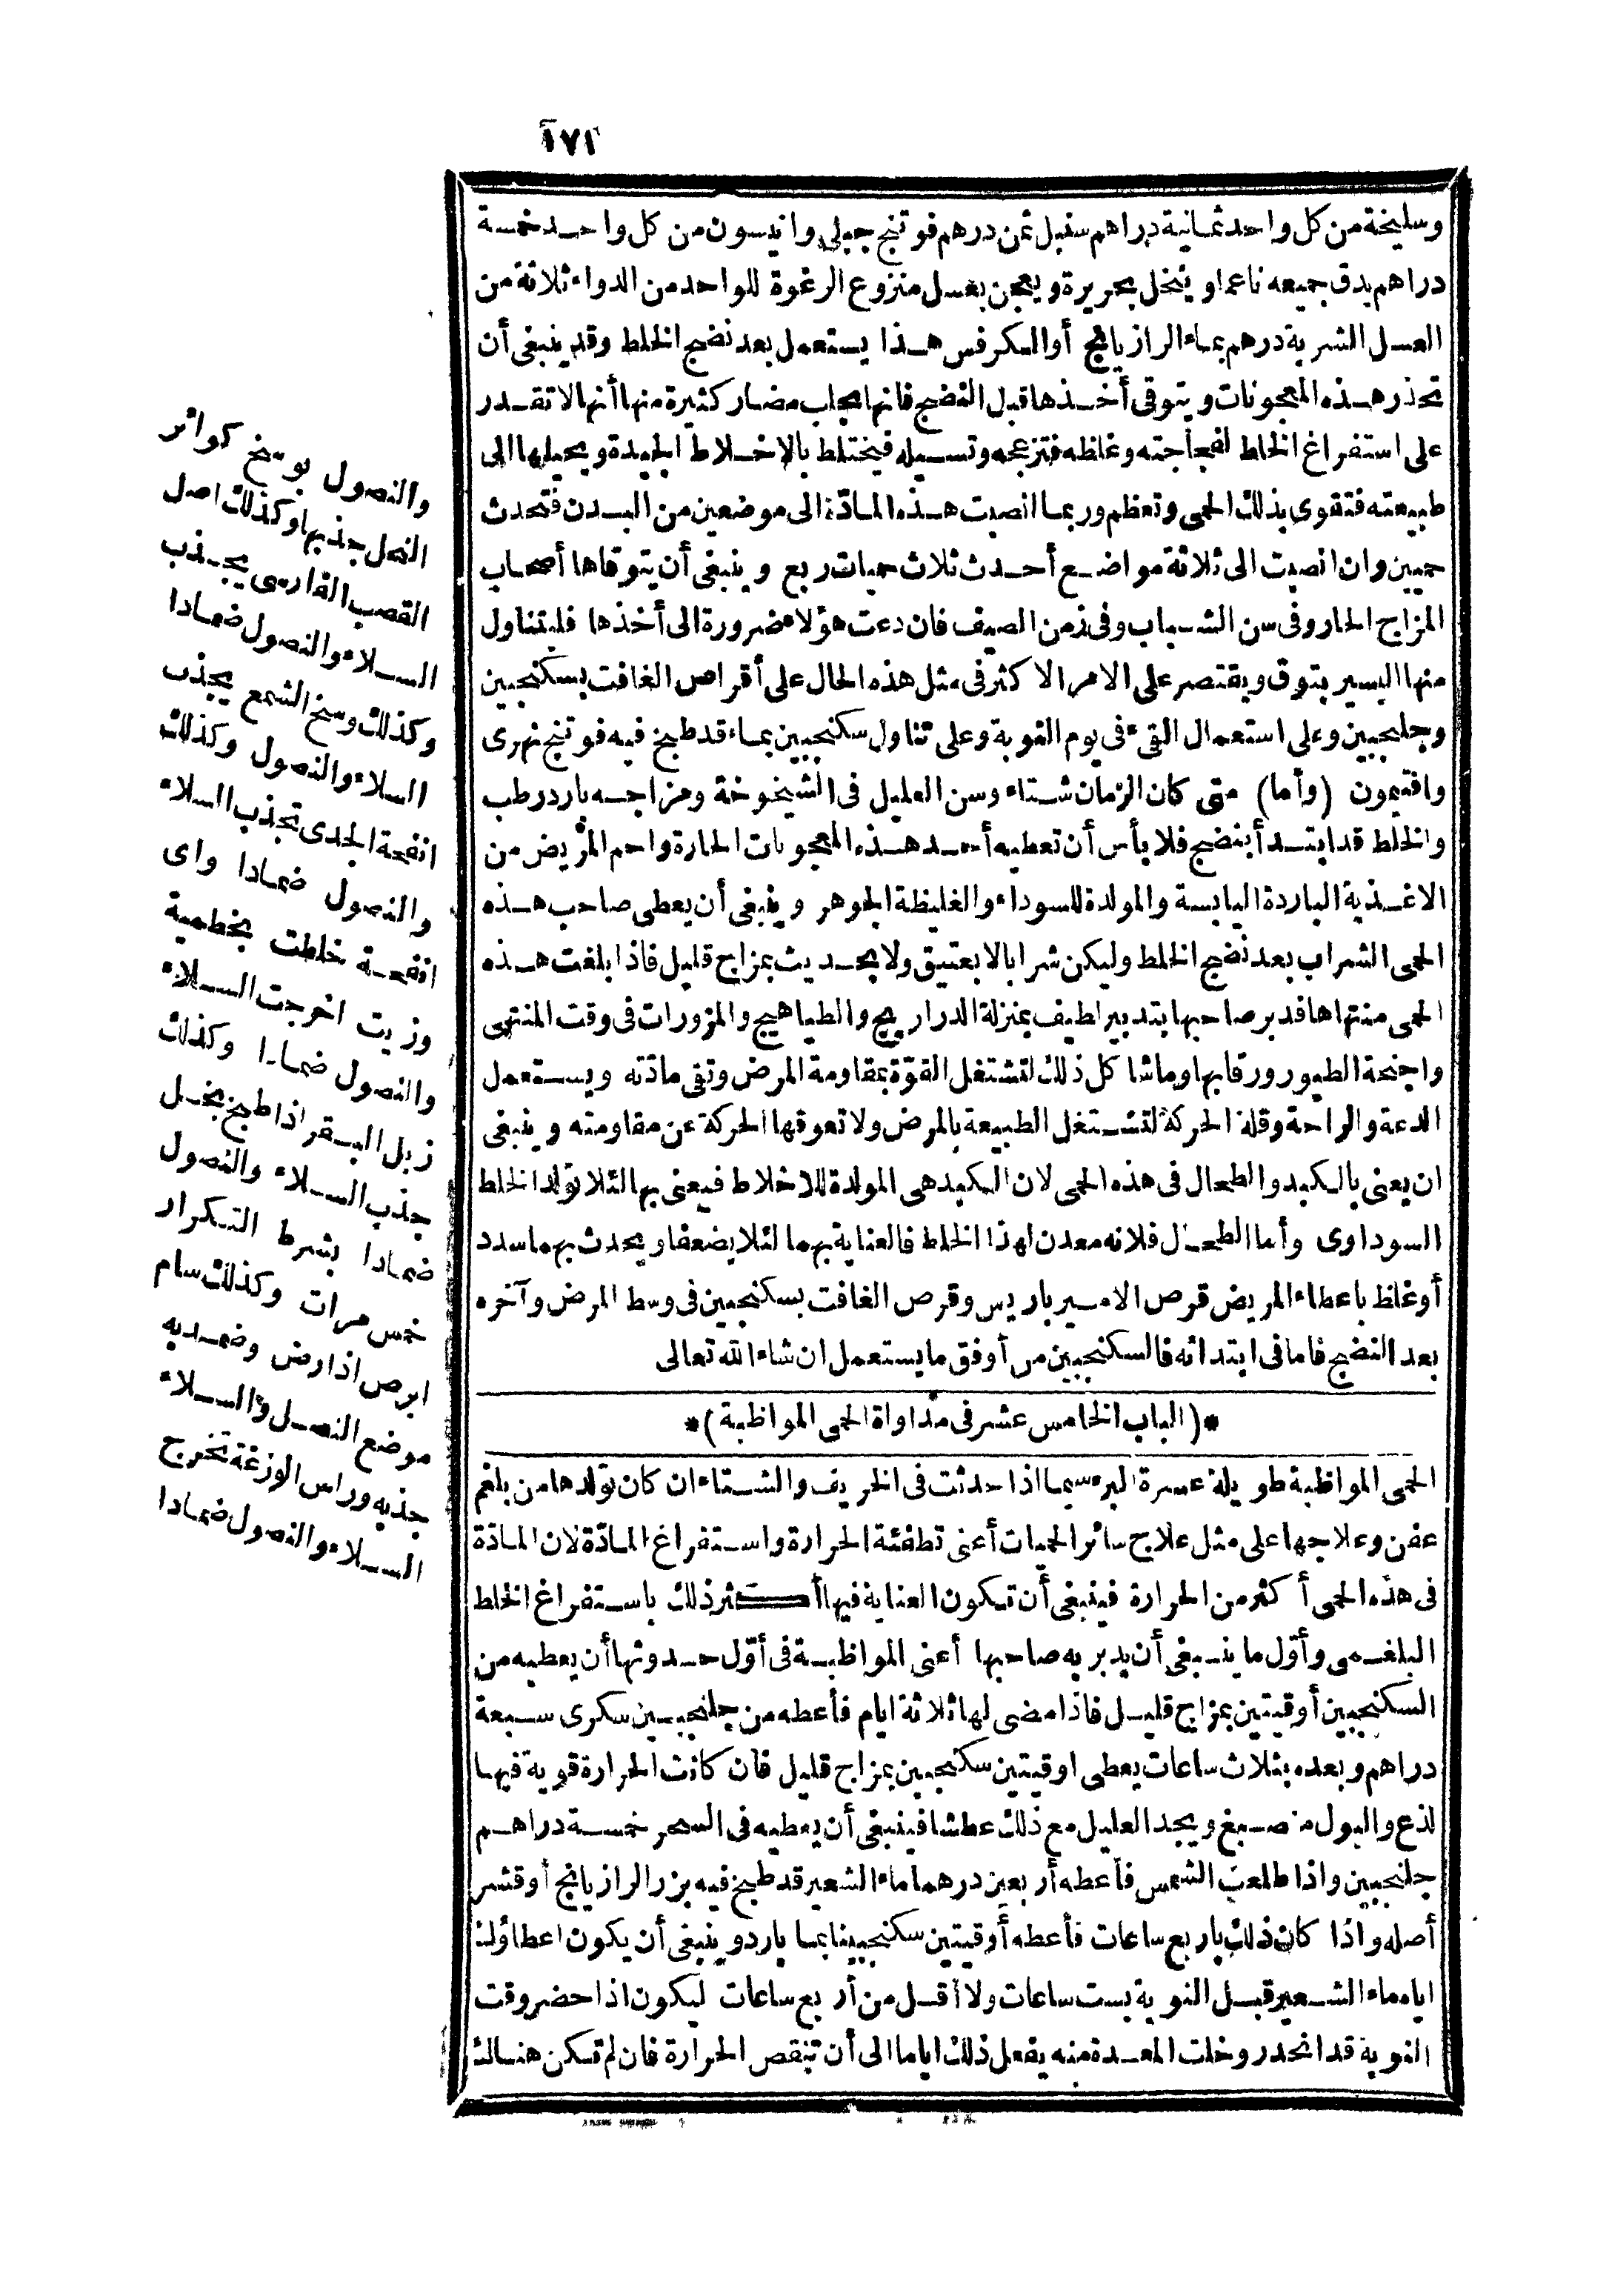 ١٧١
وسليخة من كل واحد ثمانية دراهم سنبل ثمن درهم فوتنج جبلى وانيسون من كل واحد خمسة
دراهم يدق جميعه ناعما وينخل بحريرة ويعجن بعسل منزوع الرغوة للواحد من الدواء ثلاثة من
العسل الشربة درهم بماء الرازيانج أو الكرفس هذا يستعمل بعد نضج الخلط وقد ينبغى أن
تحذر هذه المعجونات ويتوقى أخذها قبل النضج فانها تجلب مضار كثيرة منها أنها لا تقدر
على استفراغ الخلط لفجاجته وغلظه فتزعجه وتسيله فيختلط بالاخلاط الجيدة ويحيلها الى
طبيعته فتقوى بذلك الحمى وتعظم وربما انصبت هذه المادّة الى موضعين من البدن فتحدث
حميين وان انصبت الى ثلاثة مواضع أحدث ثلاث حميات ربع وينبغى أن يتوقاها أصحاب
المزاج الحار وفى سن الشباب وفى زمن الصيف فان دعت هؤلاء ضرورة الى أخذها فليتناول
منها اليسير بتوق ويقتصر على الامر الاكثر فى مثل هذه الحال على أقراص الغافت بسكنجبين
وجلنجبين وعلى استعمال القىء فى يوم النوبة وعلى تناول سكنجبين بماء قد طبخ فيه فوتنج نهرى
وافتيمون (وأما) متى كان الزمان شتاء وسن العليل فى الشيخوخة ومزاجه بارد رطب
والخلط قد ابتدأ ينضج فلا بأس أن تعطيه أحد هذه المعجونات الحارة واحم المريض من
الاغذية الباردة اليابسة والمولدة للسوداء والغليظة الجوهر وينبغى أن يعطى صاحب هذه
الحمى الشراب بعد نضج الخلط وليكن شرابا لا بعتيق ولا بحديث بمزاج قليل فاذا بلغت هذه
الحمى منتهاها فدبر صاحبها بتدبير لطيف بمنزلة الدراريج والطياهيج والمزورات فى وقت المنتهى
واجنحة الطيور ورقابها وما شاكل ذلك لتشتغل القوّة بمقاومة المرض وتفى مادّته ويستعمل
الدعة والراحة وقلة الحركة لتشتغل الطبيعة بالمرض ولا تعوقها الحركة عن مقاومته وينبغى
ان يعنى بالكبد والطحال فى هذه الحمى لان الكبد هى المولدة للاخلاط فيعنى بها لئلا تولد الخلط
السوداوى وأما الطحال فلانه معدن لهذا الخلط فالعناية بهما لئلا يضعفا ويحدث بهما سدد
أو غلظ باعطاء المريض قرص الامير باريس وقرص الغافت بسكنجبين فى وسط المرض وآخره
بعد النضج فاما فى ابتدائه فالسكنجبين من أوفق ما يستعمل ان شاء الله تعالى
*(الباب الخامس عشر فى مداواة الحمى المواظبة)*
الحمى المواظبة طويلة عسرة البرء سيما اذا حدثت فى الخريف والشتاء ان كان تولدها من بلغم
عفن وعلاجها على مثل علاج سائر الحميات أعنى تطفئة الحرارة واستفراغ المادّة لان المادّة
فى هذه الحمى أكثر من الحرارة فينبغى أن تكون العناية فيها أكثر ذلك باستفراغ الخلط
البلغمى وأوّل ما ينبغى أن يدبر به صاحبها أعنى المواظبة فى أوّل حدوثها أن يعطيه من
السكنجبين أوقيتين بمزاج قليل فاذا مضى لها ثلاثة ايام فأعطه من جلنجبين سكرى سبعة
دراهم وبعده بثلاث ساعات يعطى اوقيتين سكنجبين بمزاج قليل فان كانت الحرارة قوية فيها
لذع والبول منصبغ ويجد العليل مع ذلك عطشا فينبغى أن يعطيه فى السحر خمسة دراهم
جلنجبين واذا طلعت الشمس فأعطه أربعين درهما ماء الشعير قد طبخ فيه بزر الرازيانج أو قشر
أصله واذا كان ذلك باربع ساعات فأعطه أوقيتين سكنجبينا بماء بارد وينبغى أن يكون اعطاؤك
اياه ماء الشعير قبل النوبة بست ساعات ولا أقل من أربع ساعات ليكون اذا حضر وقت
النوبة قد انحدر وخلت المعدة منه يفعل ذلك اياما الى أن تنقص الحرارة فان لم تكن هنالك
والنصول بوسخ كوائر
النحل جذبها وكذلك اصل
القصب الفارسى يجذب
السلاء والنصول ضمادا
وكذلك وسخ الشمع يجذب
السلاء والنصول وكذلك
انفحة الجدى تجذب السلاء
والنصول ضمادا واى
انفحة خلطت بخطمية
وزيت اخرجت السلاء
والنصول ضمادا وكذلك
زبل البقر اذا طبخ بخل
جذب السلاء والنصول
ضمادا بشرط التكرار
خمس مرات وكذلك سام
ابرص اذا رض وضمد به
موضع النصل والسلاء
جذبه وراس الوزغة تخرج
السلاء والنصول ضمادا